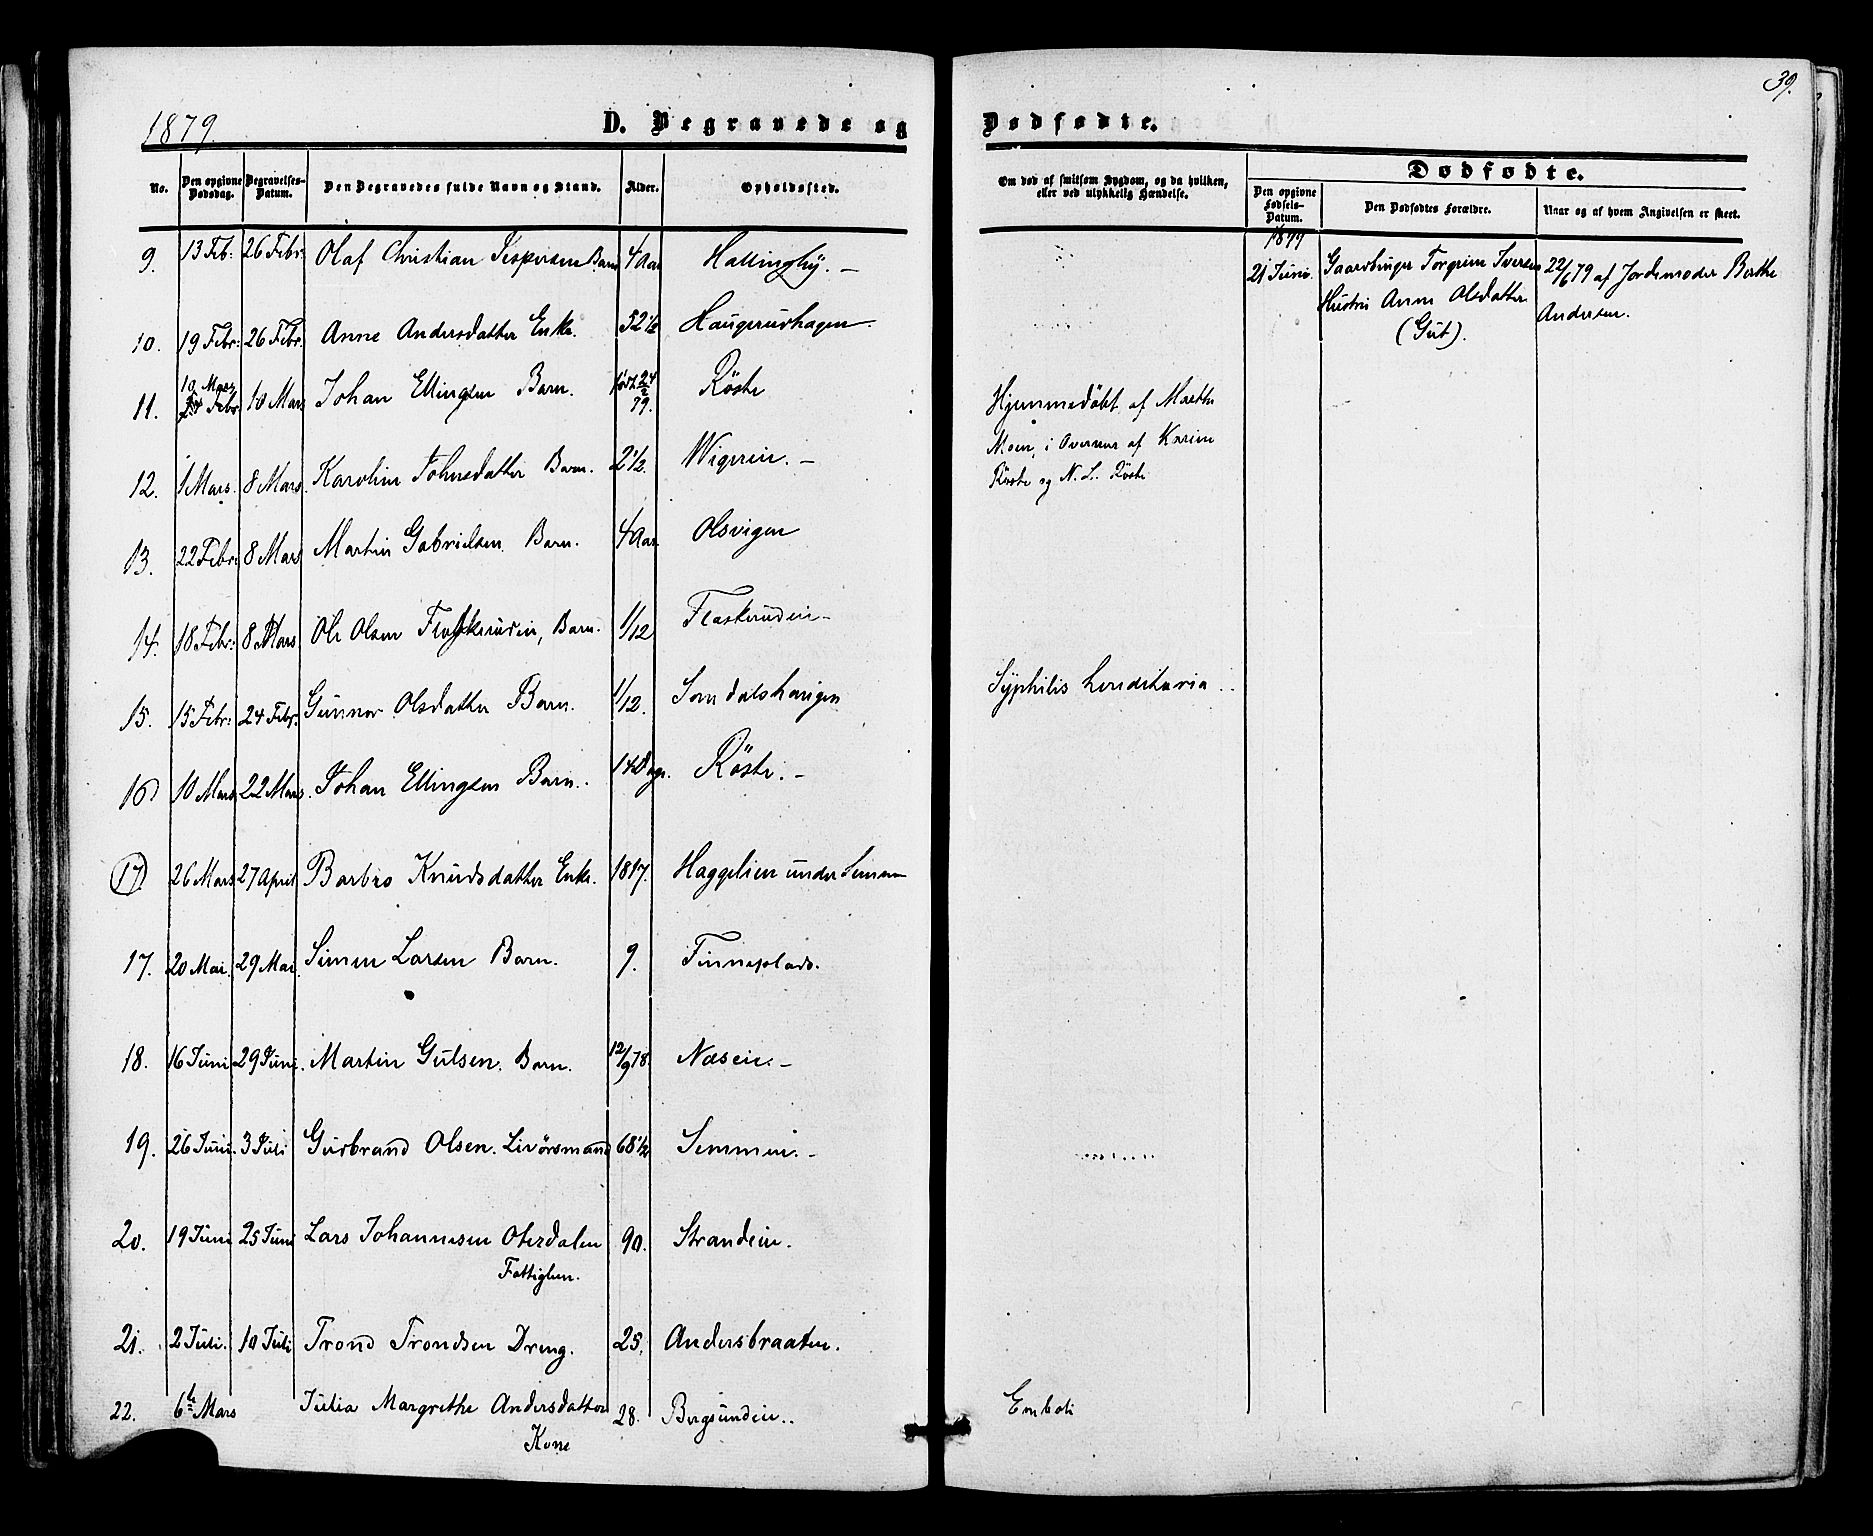 39.
1879.
D. Begravede og
Dødfødte.
No.
Den opgivne Dødsdag.
Begravelses-Datum.
Den Begravedes fulde Navn og Stand.
Alder.
Opholdssted.
Om død af smitsom Sygdom, og da hvilken, eller ved ulykkelig Hændelse.
Dødfødte.
Den opgivne Fødsels-Datum.
Den Dødfødtes Forældre.
Naar og af hvem Angivelsen er skeet.
9. 13 Feb: 26 Febr: Olaf Christian Jespersen Barn 4 Aar Hallingby. –
1879
21 Juni. Gaardbruger Torgrim Iversen 22/6 79 af Jordemoder Berthe
Hustru Anne Olsdatter Andersen.
(Gut).
10. 19 Febr: 26 Febr. Anne Andersdatter Enke. 52 1/2 Haugerudhagen.
10 Mars
11. 24 Febr 10 Mars Johan Ellingsen Barn. født 24/2 79. Röste
Hjemmedöbt af Marthe
Moen, i Overvær af Karine
Röste og N. L. Röste
12. 1 Mars. 8 Mars. Karoline Johnsdatter Barn. 2 1/2. Wigerin. –
13. 22 Febr: 8 Mars Martin Gabrielsen. Barn. 4 Aar. Olsvigen
14. 18 Febr: 8 Mars Ole Olsen Flaskerudein, Barn. 1/12 Flaskerudein –
15. 15 Febr: 24 Febr. Gunnor Olsdatter Barn. 1/12.
Syphilis hereditaria.
16) 10 Mars 22 Mars. Johan Ellingsen Barn. 14 Dage. Röste. –
17) 26 Mars 27 April Barbro Knudsdatter Enke. 1817. Haggelien under Semmen
17. 20 Mai. 29 Mai. Simen Larsen Barn. 9. Finneplads.
18. 16 Juni 29 Juni. Martin Gulsen. Barn. 12/9 78. Næsein. –
19. 26 Juni. 3 Juli Gudbrand Olsen. Livörsmand 68 1/2 Semmin. –
20. 19 Juni 25 Juni Lars Johannesen Oterdalen 90. Strandein.
Fattiglem.
21. 2 Juli. 10 Juli Trond Trondsen Dreng. 25. Andersbraaten.
22. 6te Mars Julia Margrethe Andersdatter 28. Bergsundein..
Emboli
Kone